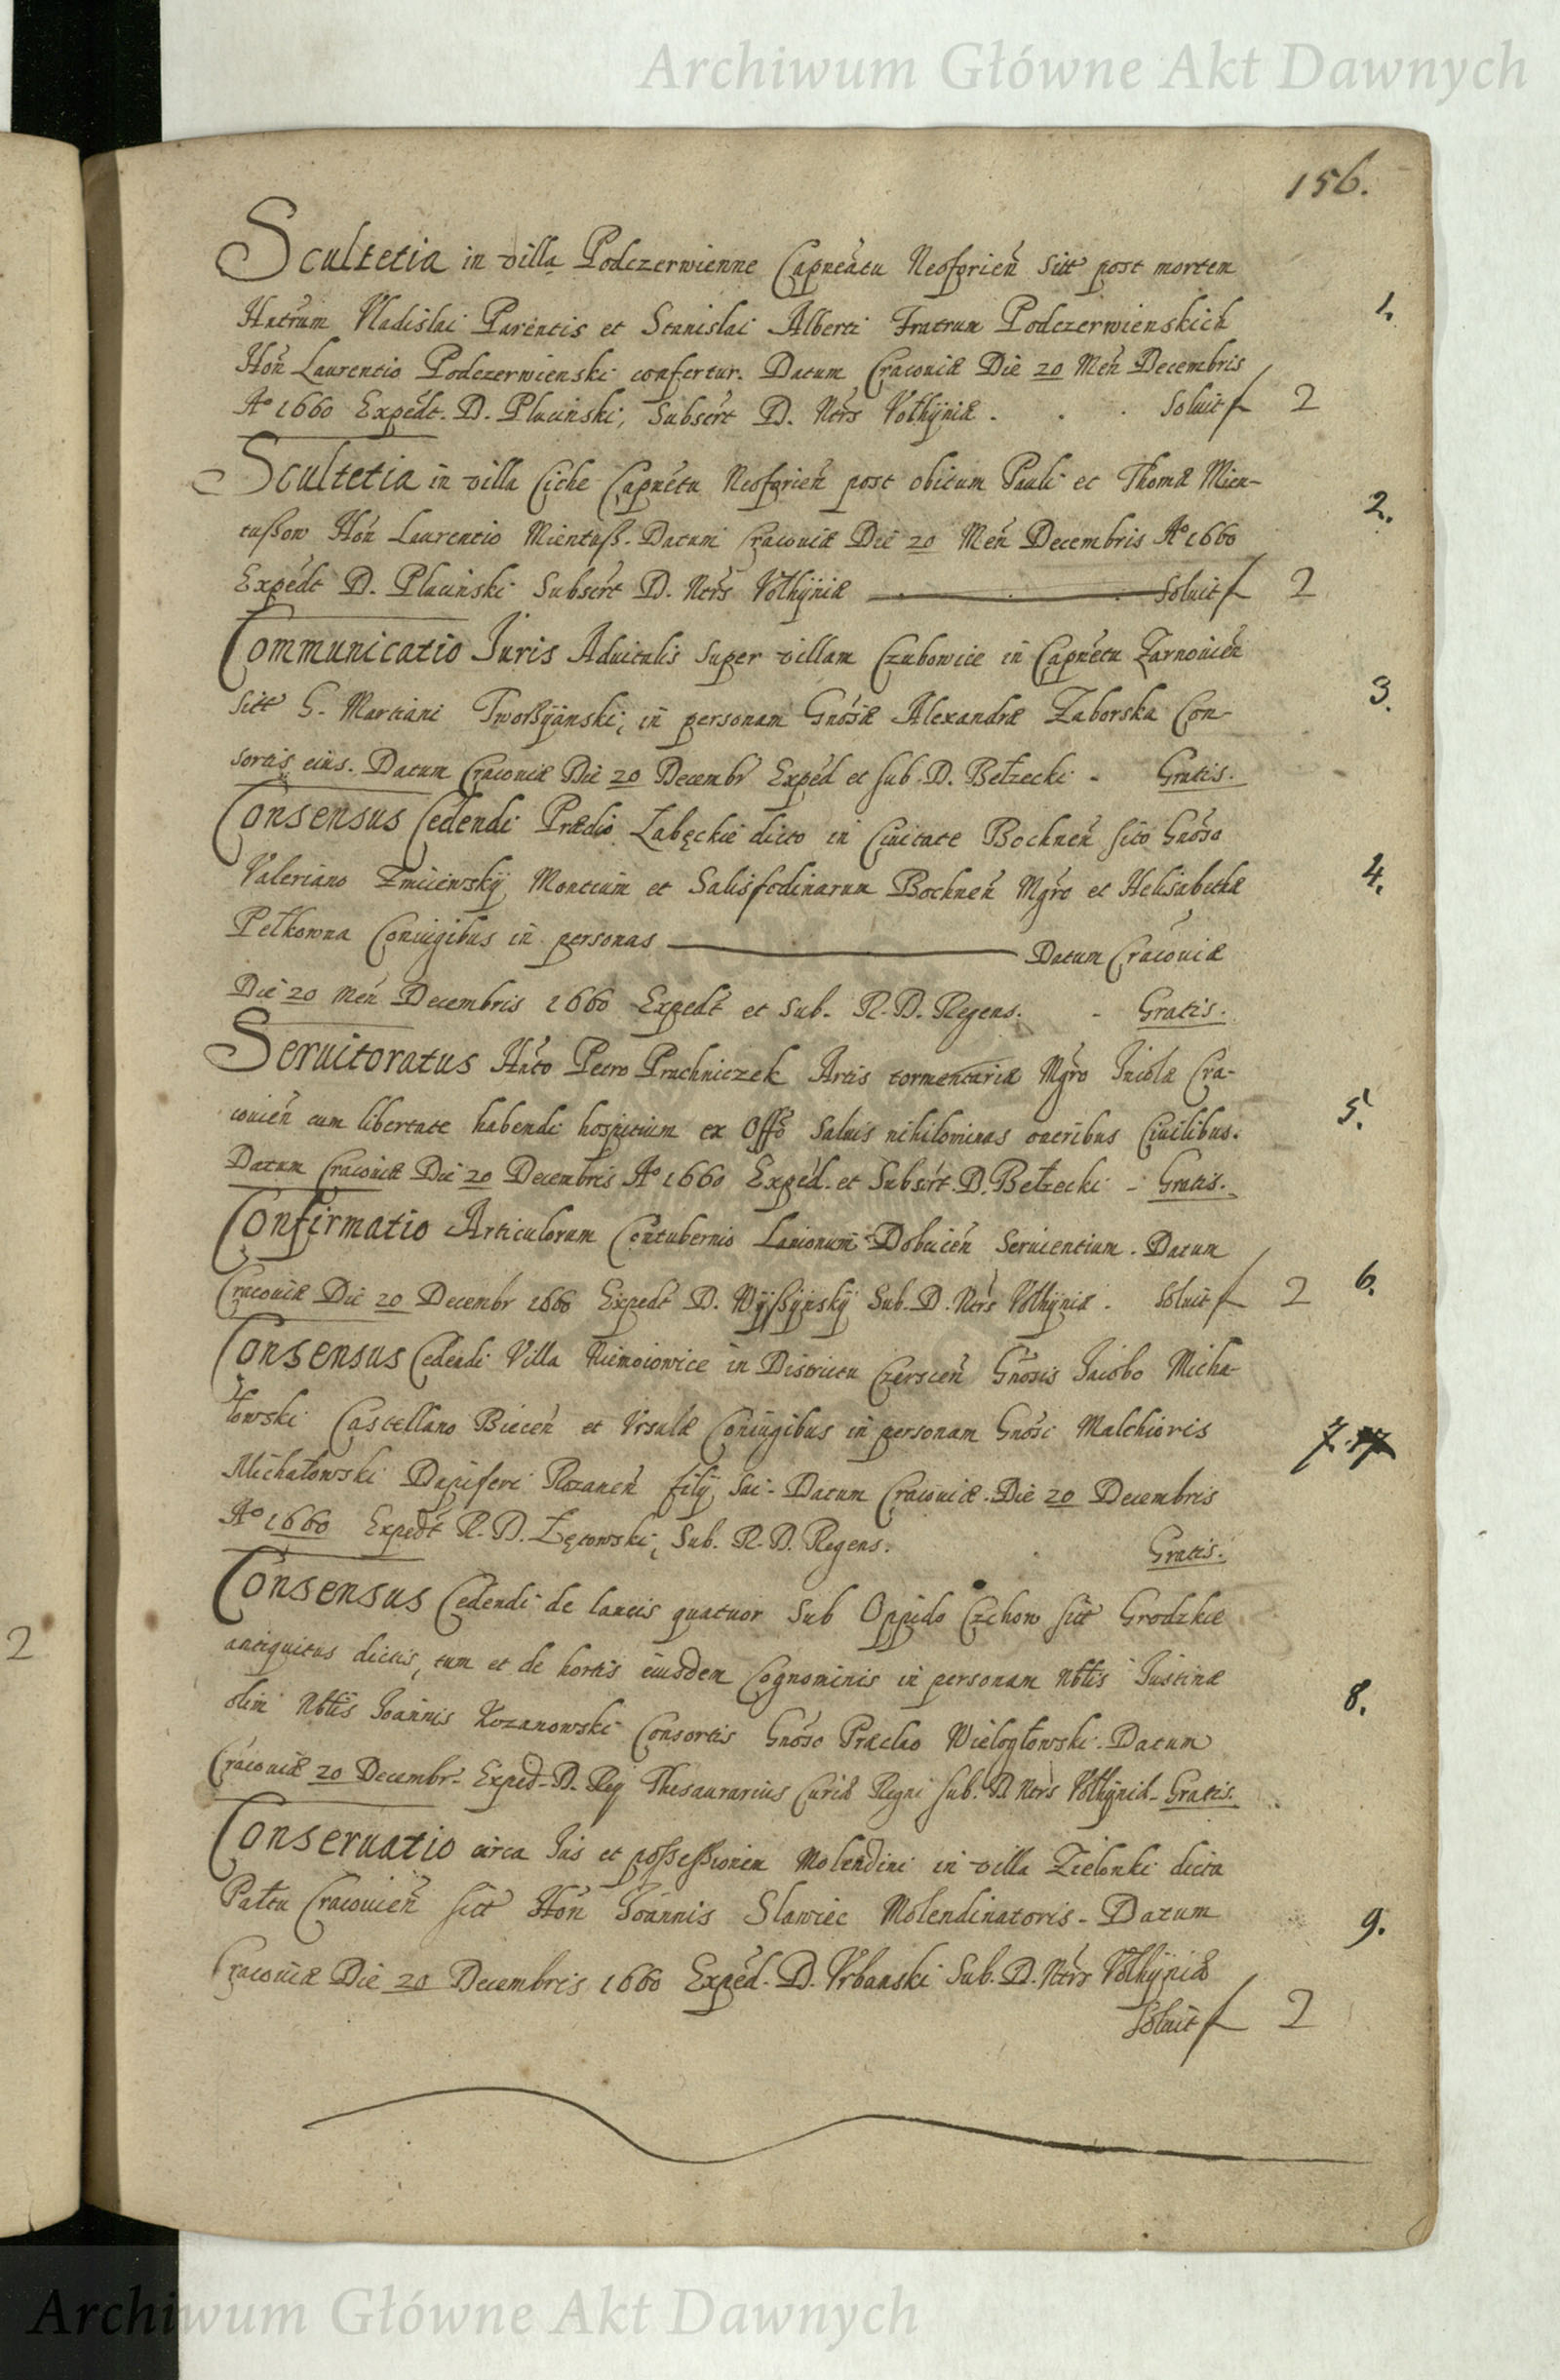 Archiwum Główne Akt Dawnych
156.
Scultetia in villa Podczerwienne Capneatu Neoforien sitt post mortem
Hntrum Vladislai Parentis et Stanislai Alberti Fratrum Podczerwienskich
1.
Hon Laurentio Podczerwienski confertur. Datum Cracoviæ Die 20 Men Decembris
Aº 1660 Expedt. D. Placinski, Subscrt D. Ntrs Volhyniæ . . . Soluit f 2
Scultetia in villa Ciche Capnetu Neoforien post obitum Pauli et Thomæ Mien-
2.
tußow Hon Laurentio Mientuß. Datum Cracoviæ Die 20 Men Decembris Aº 1660
Expedt D. Placinski Subscrt D. Ntrs Volhyniæ Soluit f 2
Communicatio Juris Aduitalis super villam Czubowice in Capnetu Zarnouien
3.
sitt G. Martiani Tworßyanski, in personam Gnosæ Alexandræ Zaborska Con-
sortis eius. Datum Cracoviæ Die 20 Decembr Exped et sub. D. Bełzecki - Gratis.
Consensus Cedendi Prædio Łabęckie dicto in Ciuitate Bochnen sito Gnoso
4.
Valeriano Zmiiewskÿ Montium et Salisfodinarum Bochnen Mgro et Helisabethæ
Pełkowna Coniugibus in personas Datum Cracouiæ
Die 20 Men Decembris 1660 Expedt et Sub. R. D. Regens. - Gratis.
Seruitoratus Hnto Petro Pruchniczek Artis tormentariæ Mgro Incolæ Cra-
5.
couien cum libertate habendi hospitium ex Offo Saluis nihilominus oneribus Ciuilibus.
Datum Cracoviæ Die 20 Decembris Aº 1660 Exped. et Subscrt. D. Bełzecki - Gratis.
Confirmatio Articulorum Contubernio Lanionum Dobcicen Seruientium. Datum
6.
Cracouiæ Die 20 Decembr 1660 Expedt D. Wÿßÿnskÿ Sub. D. Ntrs Volhyniæ . Soluit f 2
Consensus Cedendi Villa Niemoiowice in Districtu Czerscen Gnosis Jacobo Micha-
łowski Castellano Biecen et Vrsulæ Coniugibus in personam Gnosi Malchioris
7.
Michałowski Dapiferi Rozanen filÿ sui - Datum Cracoviæ. Die 20 Decembris
Aº 1660 Expedt R. D. Łętowski, Sub. R. D. Regens. Gratis.
Consensus Cedendi de laneis quatuor Sub Oppido Czchow sitt Grodzkie
antiquitus dictis, tum et de hortis eiusdem Cognominis in personam Nbtis Justinæ
8.
olim Nbtis Joannis Rozanowski Consortis Gnoso Præclao Wielogłowski. Datum
Cracouiæ 20 Decembr. Exped. D. Reÿ Thesaurarius Curiæ Regni sub. D. Ntrs Volhyniæ - Gratis.
Conseruatio circa Jus et possessionem Molendini in villa Zielonki dicta
Paltu Cracouien sitt Hon Joannis Slawiec Molendinatoris - Datum
9.
Cracouiæ Die 20 Decembris 1660 Exped. D. Vrbanski Sub. D. Ntrs Volhyniæ
Soluit f 2
2
Archiwum Główne Akt Dawnych